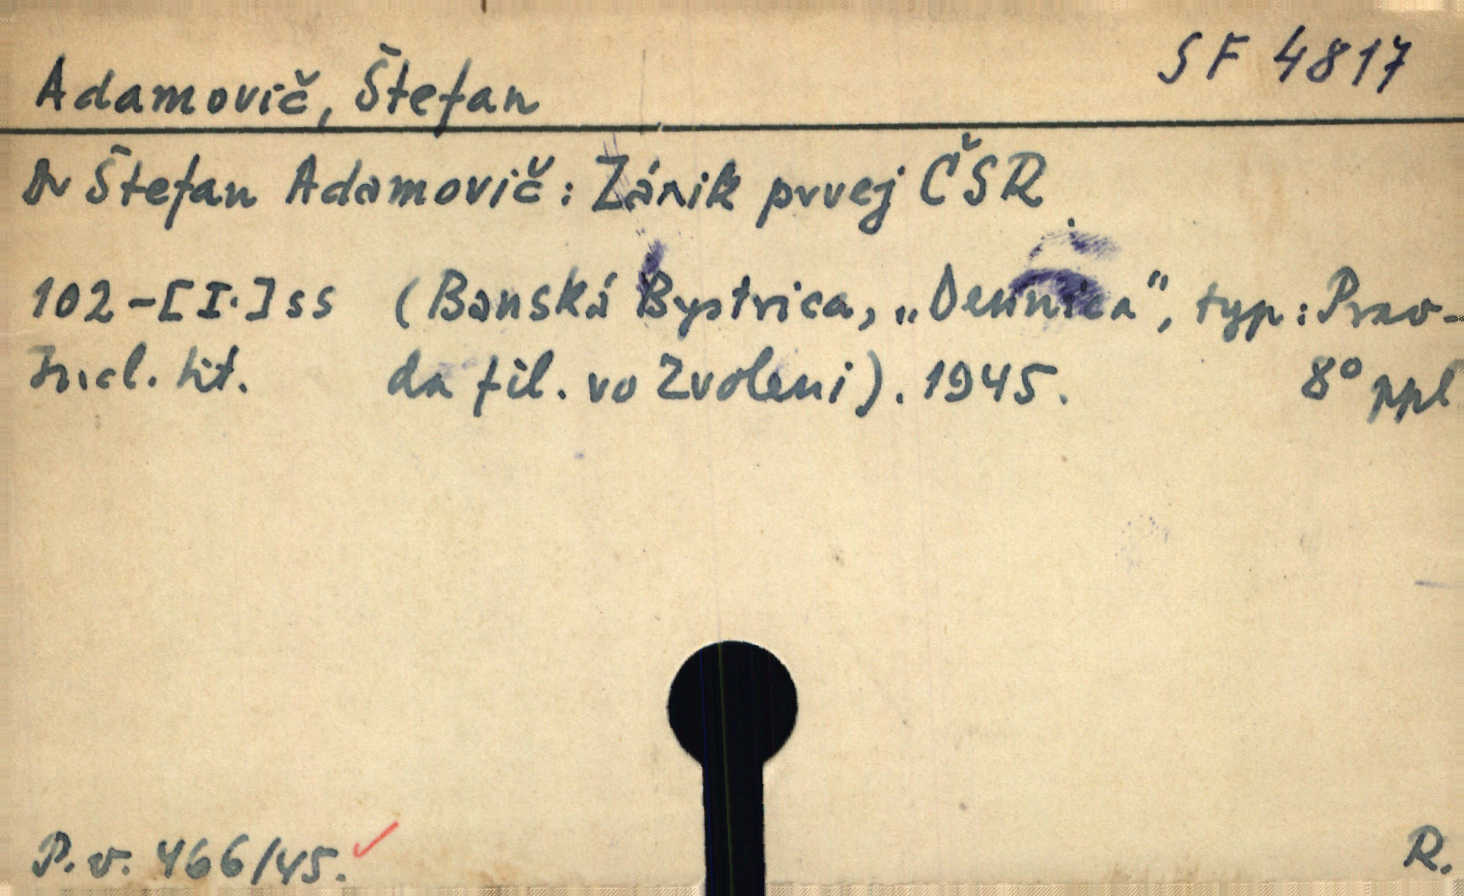 SF 4817
Adamovič, Štefan
Dr Štefan Adamovič: Zánik prvej ČSR.
102-[I.]ss (Banská Bystrica, „Dennica", typ: Prav-
Incl. tit. da fil. vo Zvoleni). 1945. 8° ppl
P.v. 466/45.
R.